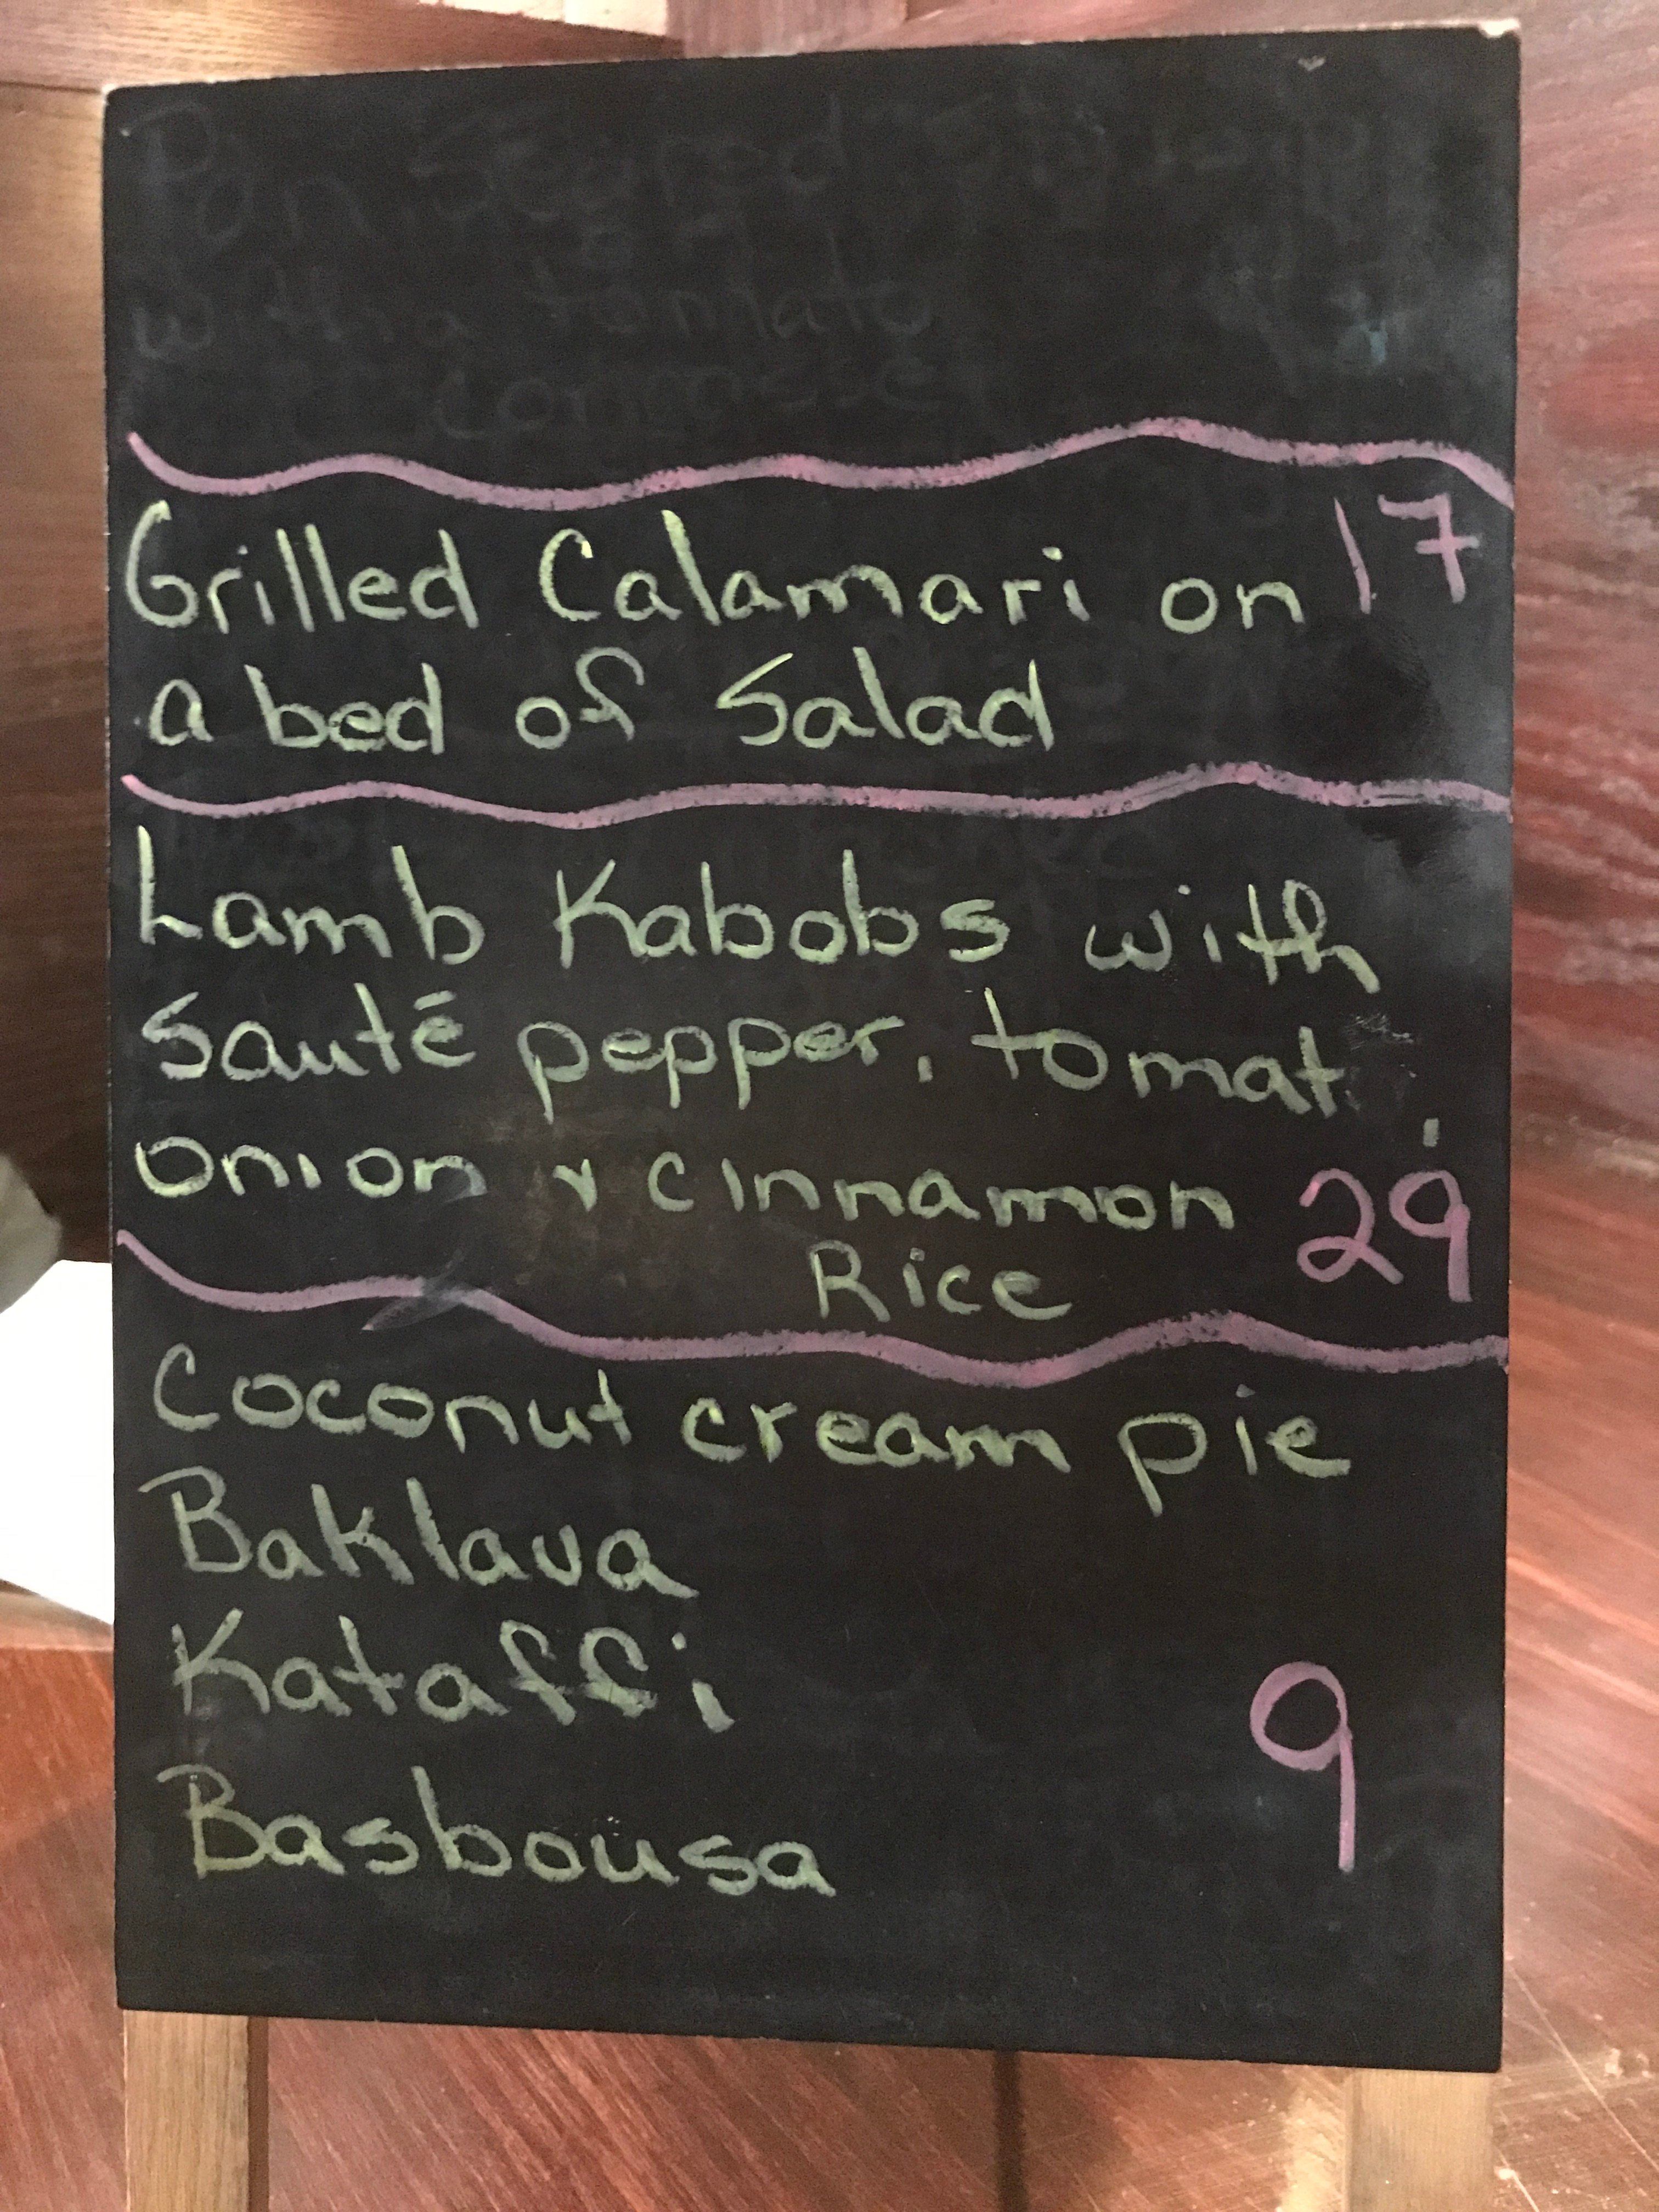 Pan Seared
with a tomato
Grilled Calamari on 17
a bed of Salad
Lamb Kabobs with
Sauté pepper, tomat,
onion & cinnamon 29
Rice
Coconut cream pie
Baklava
Kataffi
9
Basbousa